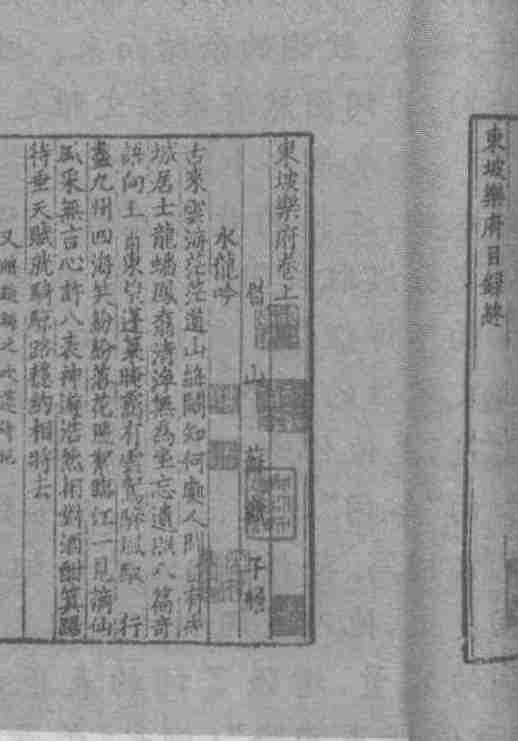 東坡樂府目錄終
東坡樂府卷上
眉山 蘇軾 子瞻
水龍吟
古來雲海茫茫道山絳闕知何處人間自有赤
城居士龍蟠鳳翥清淨無為坐忘遺照八篇奇
語向玉霄東望蓬萊晻靄有雲駕驂風馭 行
盡九州四海笑紛紛落花飛絮臨江一見謫仙
風采無言心許八表神遊浩然相對酒酣箕踞
待垂天賦就騎鯨路穩約相將去
又贈趙晦之吹笛侍兒